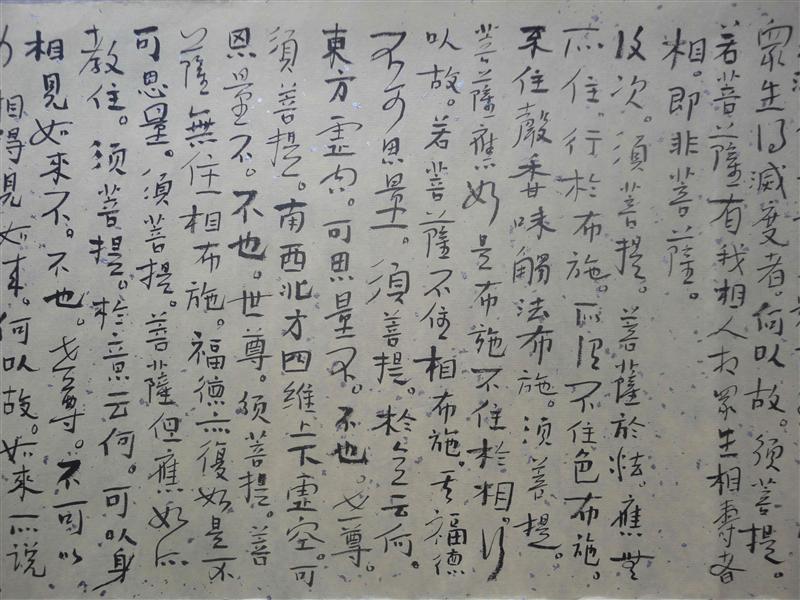 眾生得滅度者。何以故。須菩提。
若菩薩有我相人相眾生相壽者
相。即非菩薩。
復次。須菩提。菩薩於法。應無
所住。行於布施。所謂不住色布施。
不住聲香味觸法布施。須菩提。
菩薩應如是布施不住於相。何
以故。若菩薩不住相布施。其福德
不可思量。須菩提。於意云何。
東方虛空。可思量不。不也。世尊。
須菩提。南西北方四維上下虛空。可
思量不。不也。世尊。須菩提。菩
薩無住相布施。福德亦復如是不
可思量。須菩提。菩薩但應如所
教住。須菩提。於意云何。可以身
相見如來不。不也。世尊。不可以
相得見如來。何以故。如來所說